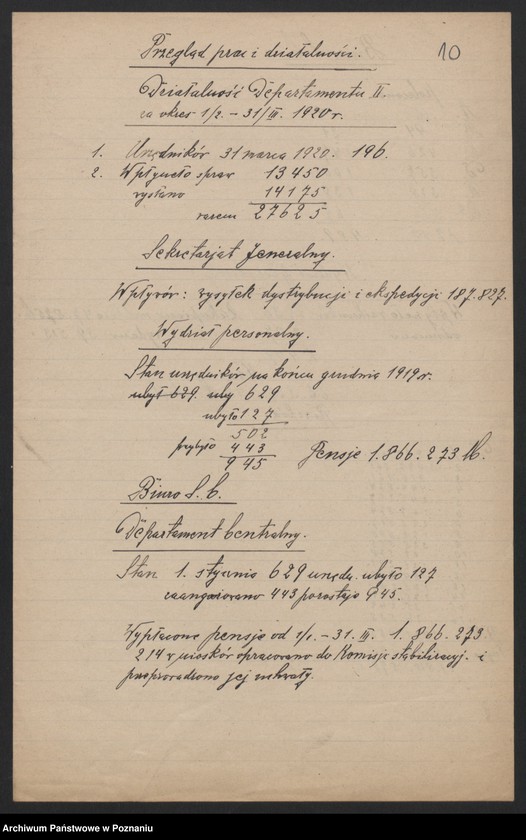 10
Przegląd prac i działalności.
Działalność Departamentu II.
za okres 1/2. – 31/III. 1920 r.
1. Urzędników 31 marca 1920. 196.
2. Wpłynęło spraw 13450
wysłano 14175
razem 27625
Sekretarjat Jeneralny.
Wpływów: wysyłek dystrybucji i ekspedycji 187.827.
Wydział personalny.
Stan urzędników na końcu grudnia 1919 r.
ubył 629. uby 629
ubyło 127
502
przybyło 443
945 Pensje 1.866.273 M.
Biuro S. C.
Departament Centralny.
Stan 1. stycznia 629 urzędn. ubyło 127
zaangażowano 443 pozostaje 945.
Wypłacone pensje od 1/1. – 31. III. 1.866.273
214 wniosków opracowano do Komisji stabilizacyj. i
przeprowadzono jej uchwały.
Archiwum Państwowe w Poznaniu